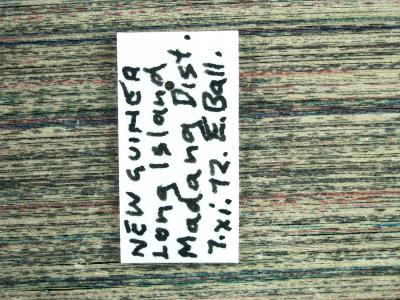 NEW GUINEA
Long Island
Madang Dist.
7.xi.72. E.Ball.